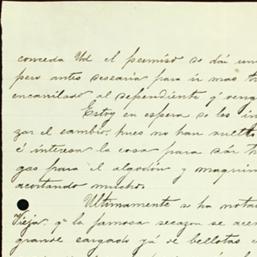 conceda Ud el permiso se dá un
pero antes desearia para ir mas tr
encarrilado al dependiente y venga
Estoy en espera se les in
zar el cambio, pues no han vuelto
é interesa la cosa para sár tr
gas para el algodón y maquin
acortando mucho.
Ultimamente se ha nota
Vieja, q. la famosa secazon se acer
grande cargado yá de bellotas e